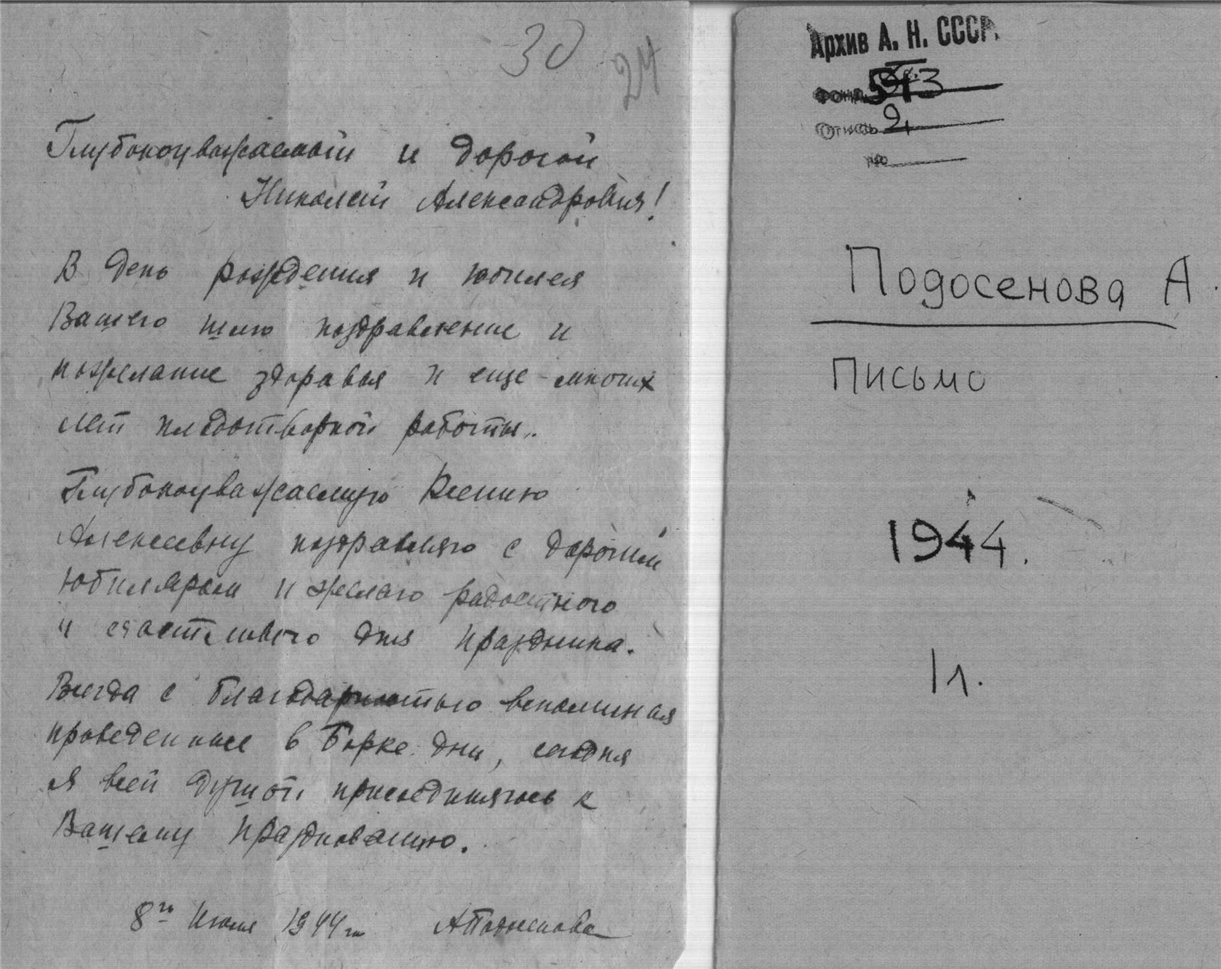 30
24
Глубокоуважаемый и дорогой
Николай Александрович!
В день рождения и юбилея
Вашего шлю поздравление и
пожелание здоровья и еще многих
лет плодотворной работы.
Глубокоуважаемую Ксению
Алексеевну поздравляю с дорогим
юбиляром и желаю радостного
и счастливого дня праздника.
Всегда с благодарностью вспоминая
проведенные в Борке дни, сегодня
я всей душой присоединяюсь к
Вашему празднованию.
8го Июля 1944 го АПодосенова
Архив А. Н. СССР.
фонд 543
Опись 2
№
Подосенова А.
Письмо
1944.
1 л.